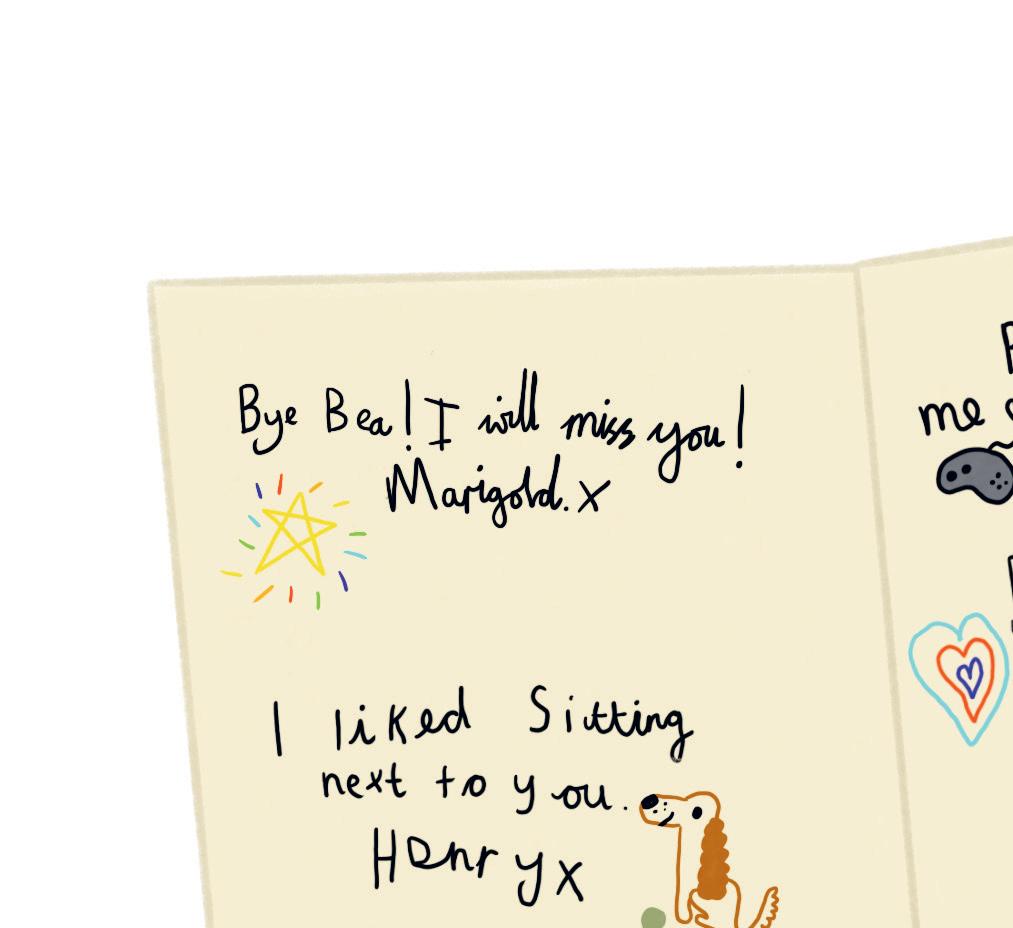 Bye Bea! I will miss you!
Marigold. x
I liked Sitting
next to you.
Henry x
me